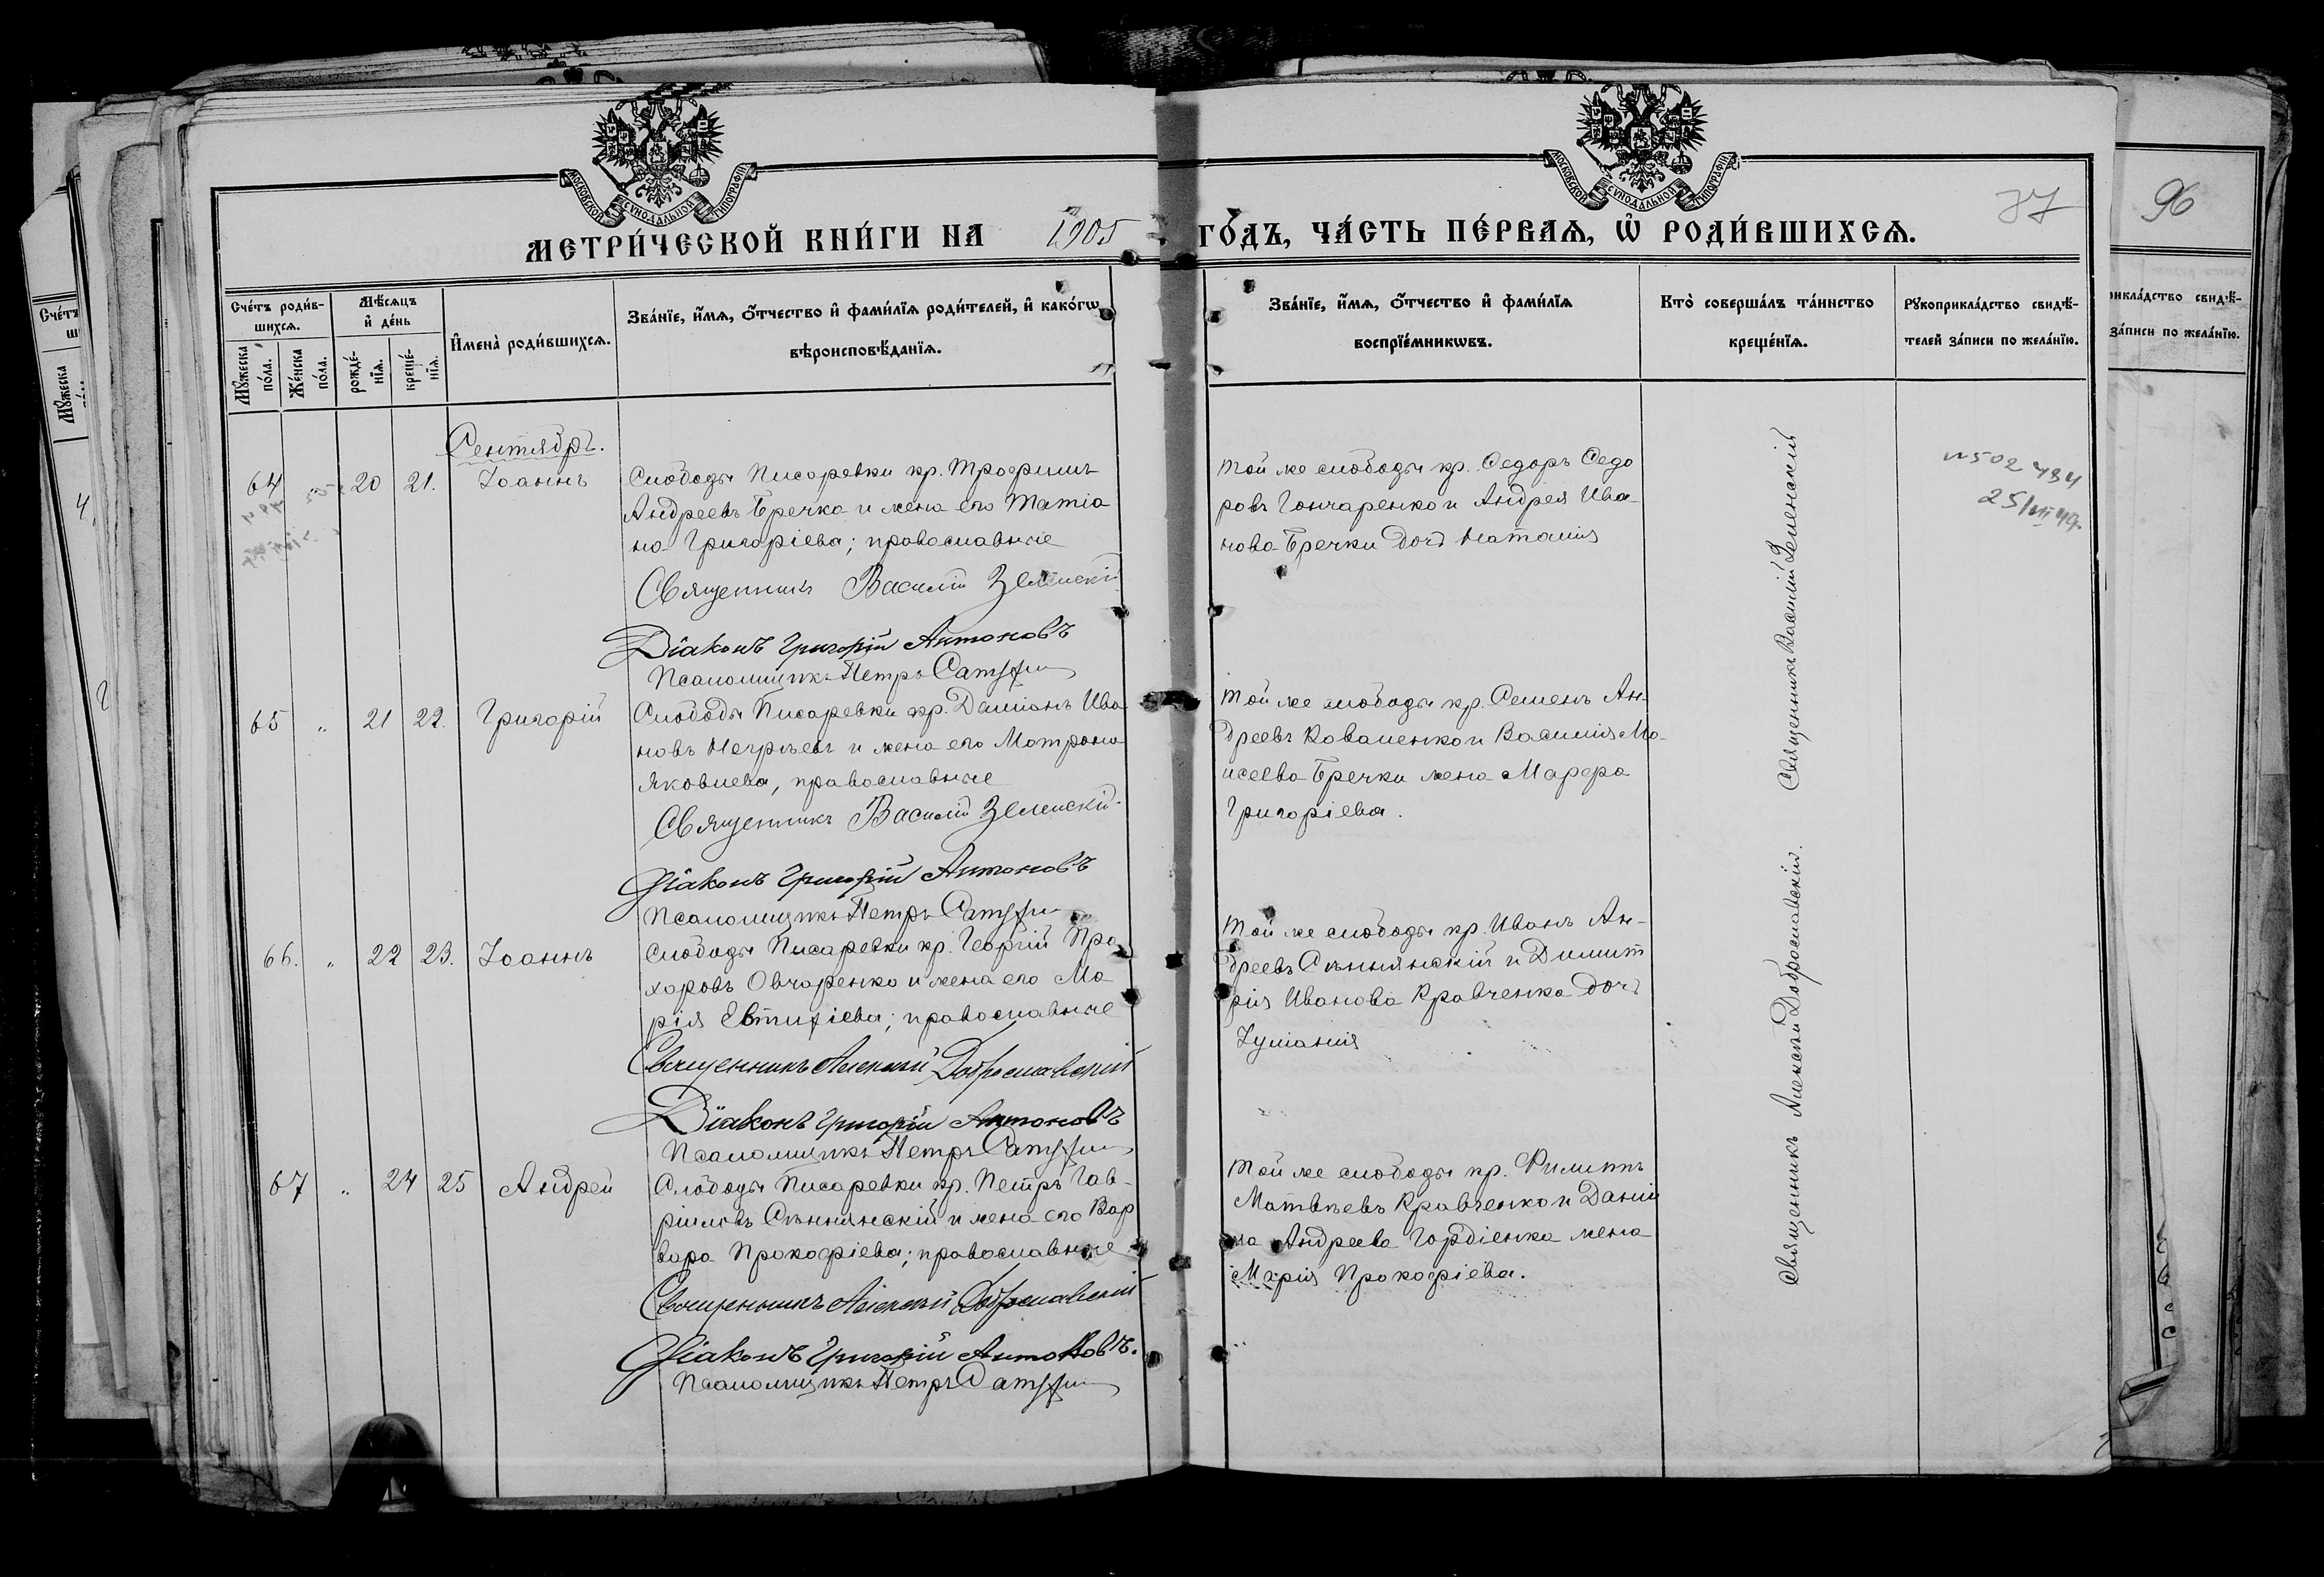 МОСКОВСКОЙ СѴНОДАЛЬНОЙ ТИПОГРАФІИ
МОСКОВСКОЙ СѴНОДАЛЬНОЙ ТИПОГРАФІИ
37
96
МЕТРИ́ЧЕСКОЙ КНИ́ГИ НА 1905 ГО́ДЪ, ЧА́СТЬ ПЕ́РВАѦ, Ѡ҆ РОДИ́ВШИХСѦ.
Сче́тъ роди́в-
шихсѧ.
Мꙋ́жеска
по́ла.
Же́нска
по́ла.
Мѣ́сѧцъ
и҆ де́нь
рожде́-
нїѧ.
креще́-
нїѧ.
И҆мена̀ роди́вшихсѧ.
Зва́нїе, и҆́мѧ, ѻ҆́тчество и҆ фами́лїѧ роди́телей, и҆ како́гѡ
вѣроисповѣ́данїѧ.
Зва́нїе, и҆́мѧ, ѻ҆́тчество и҆ фами́лїѧ
воспрїе́мникѡвъ.
Кто̀ соверша́лъ та́инство
креще́нїѧ.
Рꙋкоприкла́дство свидѣ́-
телей за́писи по жела́нїю.
Сентябрь.
64 20 21. Іоаннъ
Слободы Писаревки кр. Трофимъ
Андреевъ Бречка и жена его Татіа
на Григоріева; православные
Священникъ Василій Зеленскій
Діаконъ Григорій Антоновъ
Псаломщикъ Петръ
Той же слободы кр. Ѳедоръ Ѳедо
ровъ Гончаренко и Андрея Ива-
нова Бречки дочь Наталія
N 502 484
25/VII 49.
65 " 21 22. Григорій
Слободы Писаревки кр. Даміанъ Ива
новъ и жена его Матрона
Яковлева, православные
Священникъ Василій Зеленскій.
Діаконъ Григорій Антоновъ
Псаломщикъ Петръ
Той же слободы кр. Семенъ Ан-
дреевъ Коваленко и Василія Мо-
исеева Бречки жена Марфа
Григоріева.
66. " 22 23. Іоаннъ
Слободы Писаревки кр. Георгій Про
хоровъ Овчаренко и жена его Ма
рія Евтихіева; православные
Священникъ Алексѣй Доброславскій
Діаконъ Григорій Антоновъ
Псаломщикъ Петръ
Той же слободы кр. Иванъ Ан-
дреевъ Сѣннянскій и Димит
рія Иванова Кравченка дочь
Іуліанія
67 " 24 25 Андрей
Слободы Писаревки кр. Петръ Гав-
ріиловъ Сѣннянскій и жена его Вар
вара Прокофіева; православные
Священникъ Алексѣй Доброславскій
Діаконъ Григорій Антоновъ.
Псаломщикъ Петръ
Той же слободы кр. Филиппъ
Матвѣевъ Кравченко и Даніи
ла Андреева Гордіенка жена
Марія Прокофіева.
Священникъ Василій Зеленскій
Священникъ Алексѣй Доброславскій.